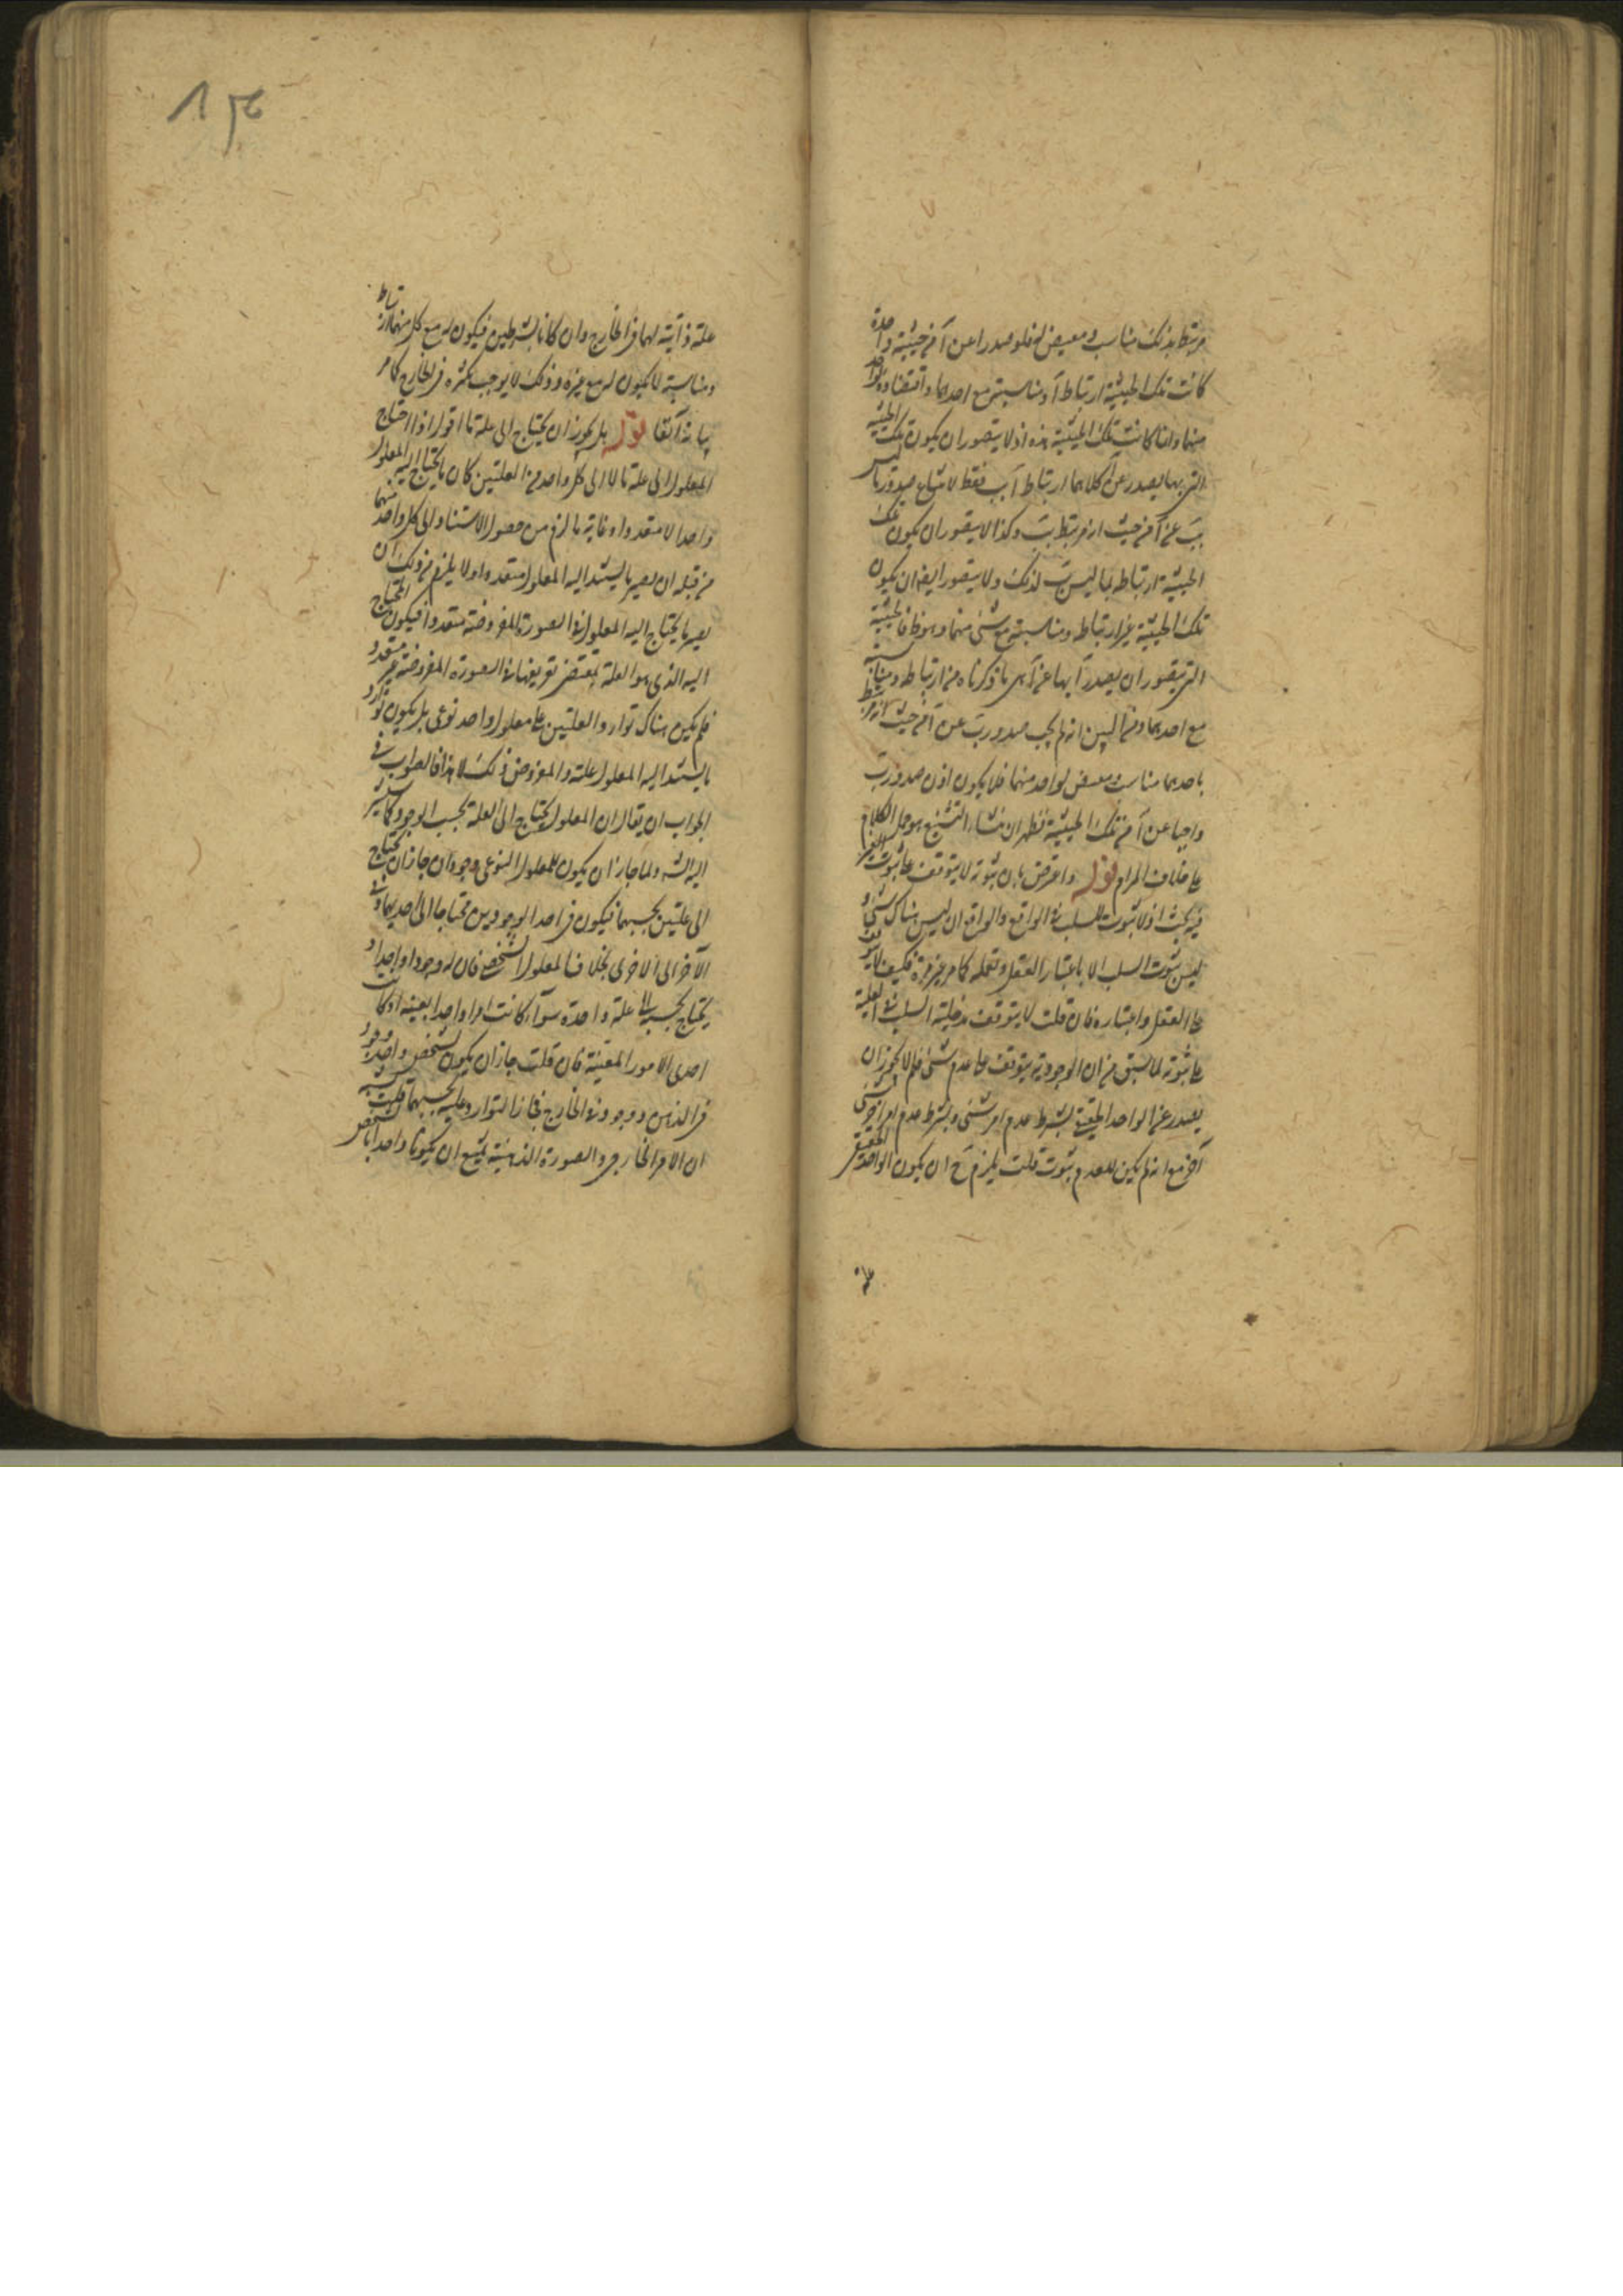 مرتبط بذلك مناسب ومفيض له فلو صدرا عن آ من حيثية واحدة
كانت تلك الحيثية ارتباط آ ومناسبته مع احدهما واقتضاؤه لواحد
منهما ولما كانت تلك الحيثية هذه اذ لا يتصور ان يكون تلك الحيثية
التى بها يصدر عن آ كلاهما ارتباط آ بب فقط لامتناع صدور ما ليس
بب عن آ من حيث انه مرتبط بب وكذا لا يتصور ان يكون تلك
الحيثية ارتباطه بما ليس بب لذلك ولا يتصور ايضا ان يكون
تلك الحيثية غير ارتباطه ومناسبته مع شئ منهما وهو ظ فالحيثية
التى يتصور ان يصدر آ بها عن آ هى ما ذكرناه من ارتباطه ومناسبته
مع احدهما ومن البين انه لم يجب صدور بب عن آ من حيث انه مرتبط
باحدهما مناسب ومفيض لواحد منهما فلا يكون اذن صدور بب
واجبا عن آ من تلك الحيثية فظهر ان منشاء التشنيع هو حمل الكلام
على خلاف المرام قوله واعترض بان ثبوته لا يتوقف على ثبوت الغير
فيه بحث اذ لا ثبوت للسلب فى الواقع والواقع ان ليس هناك شئ و
ليس ثبوت السلب الا باعتبار العقل وتعمله كما مر غير مرة فكيف لا يتوقف
على العقل واعتباره فان قلت لا يتوقف مدخلية السلب فى العلية
على ثبوته لما سبق من ان الوجود قد يتوقف على عدم شئ فلم لا يجوز ان
يصدر عن الواحد الحقيقى بشرط عدم امر شئ وبشرط عدم امر آخر شئ
آخر مع انه لم يكن للعدم ثبوت قلت يلزم ح ان يكون الواحد الحقيقى
علة
علة ذاتية لهما فى الخارج وان كانا بشرطين فيكون له مع كل منهما ارتباط
ومناسبة لا يكون له مع غيره وذلك لا يوجب تكثره فى الخارج كما مر
بيانه آنفا قوله بل يجوز ان يحتاج الى علة ما اقول اذا احتاج
المعلول الى علة ما لا الى كل واحد من العلتين كان ما يحتاج اليه المعلول
واحدا لا متعددا وغاية ما لزم من حصول الاستناد الى كل واحد منهما
من قبله ان يصير ما يستند اليه المعلول متعددا ولا يلزم من ذلك ان
يصير ما يحتاج اليه المعلول فى الصورة المفروضة متعددا فيكون المحتاج
اليه الذى هو العلة بمقتضى تعريفها فى الصورة المفروضة غير متعدد
فلم يكن هناك توارد العلتين على معلول واحد نوعى بل يكون توارد
ما يستند اليه المعلول علته والمفروض ذلك لا هذا فالصواب فى
الجواب ان يقال ان المعلول يحتاج الى العلة بحسب الوجود كما يشير
اليه الش ولما جاز ان يكون للمعلول النوعى وجودان جاز ان يحتاج
الى علتين بحسبهما فيكون فى احد الوجودين محتاجا الى احديهما وفى
الآخر الى الاخرى بخلاف المعلول الشخصى فان له وجودا واحدا و
يحتاج بحسبه الى علة واحدة سواء كانت امرا واحدا بعينه او كانت
احدى الامور المعينة فان قلت جاز ان يكون لشخص واحد وجود
فى الذهن ووجود فى الخارج فجاز التوارد عليه بحسبهما قلت
ان الامر الخارجى والصورة الذهنية يمتنع ان يكونا واحدا بالشخص